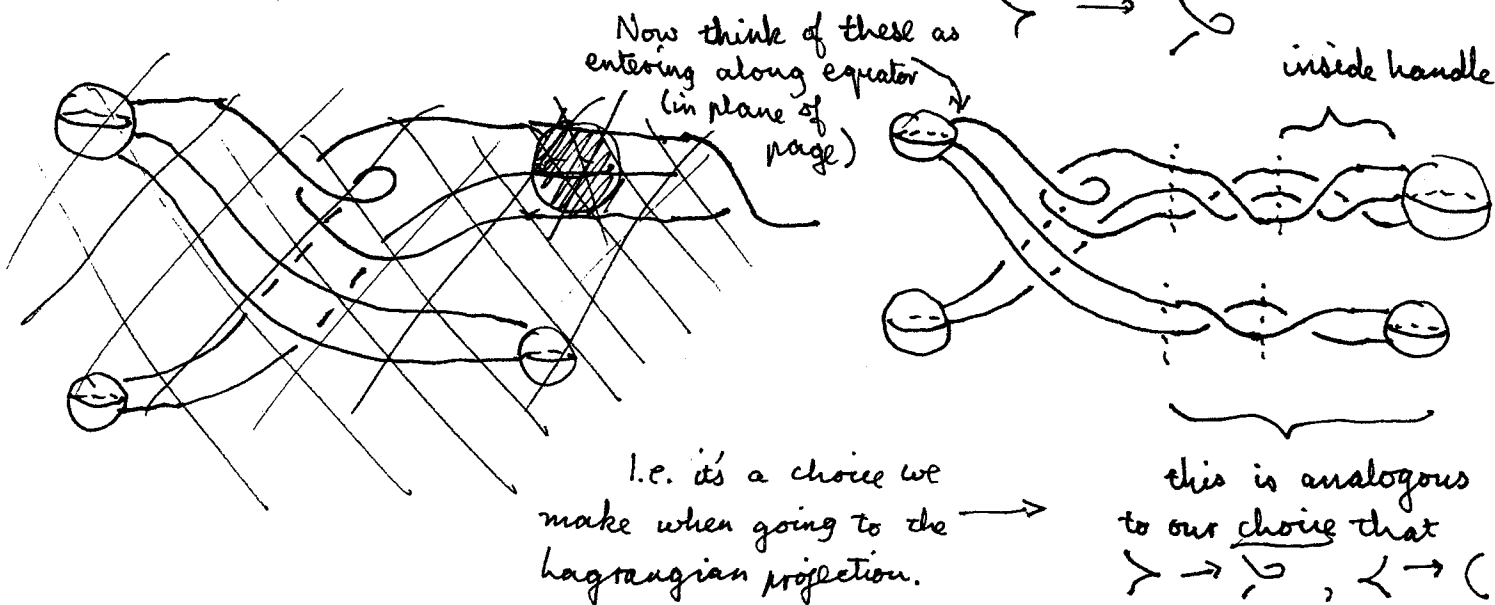 Now think of these as
entering along equator
(in plane of
page)
inside handle
I.e. it's a choice we
make when going to the
Lagrangian projection.
this is analogous
to our choice that